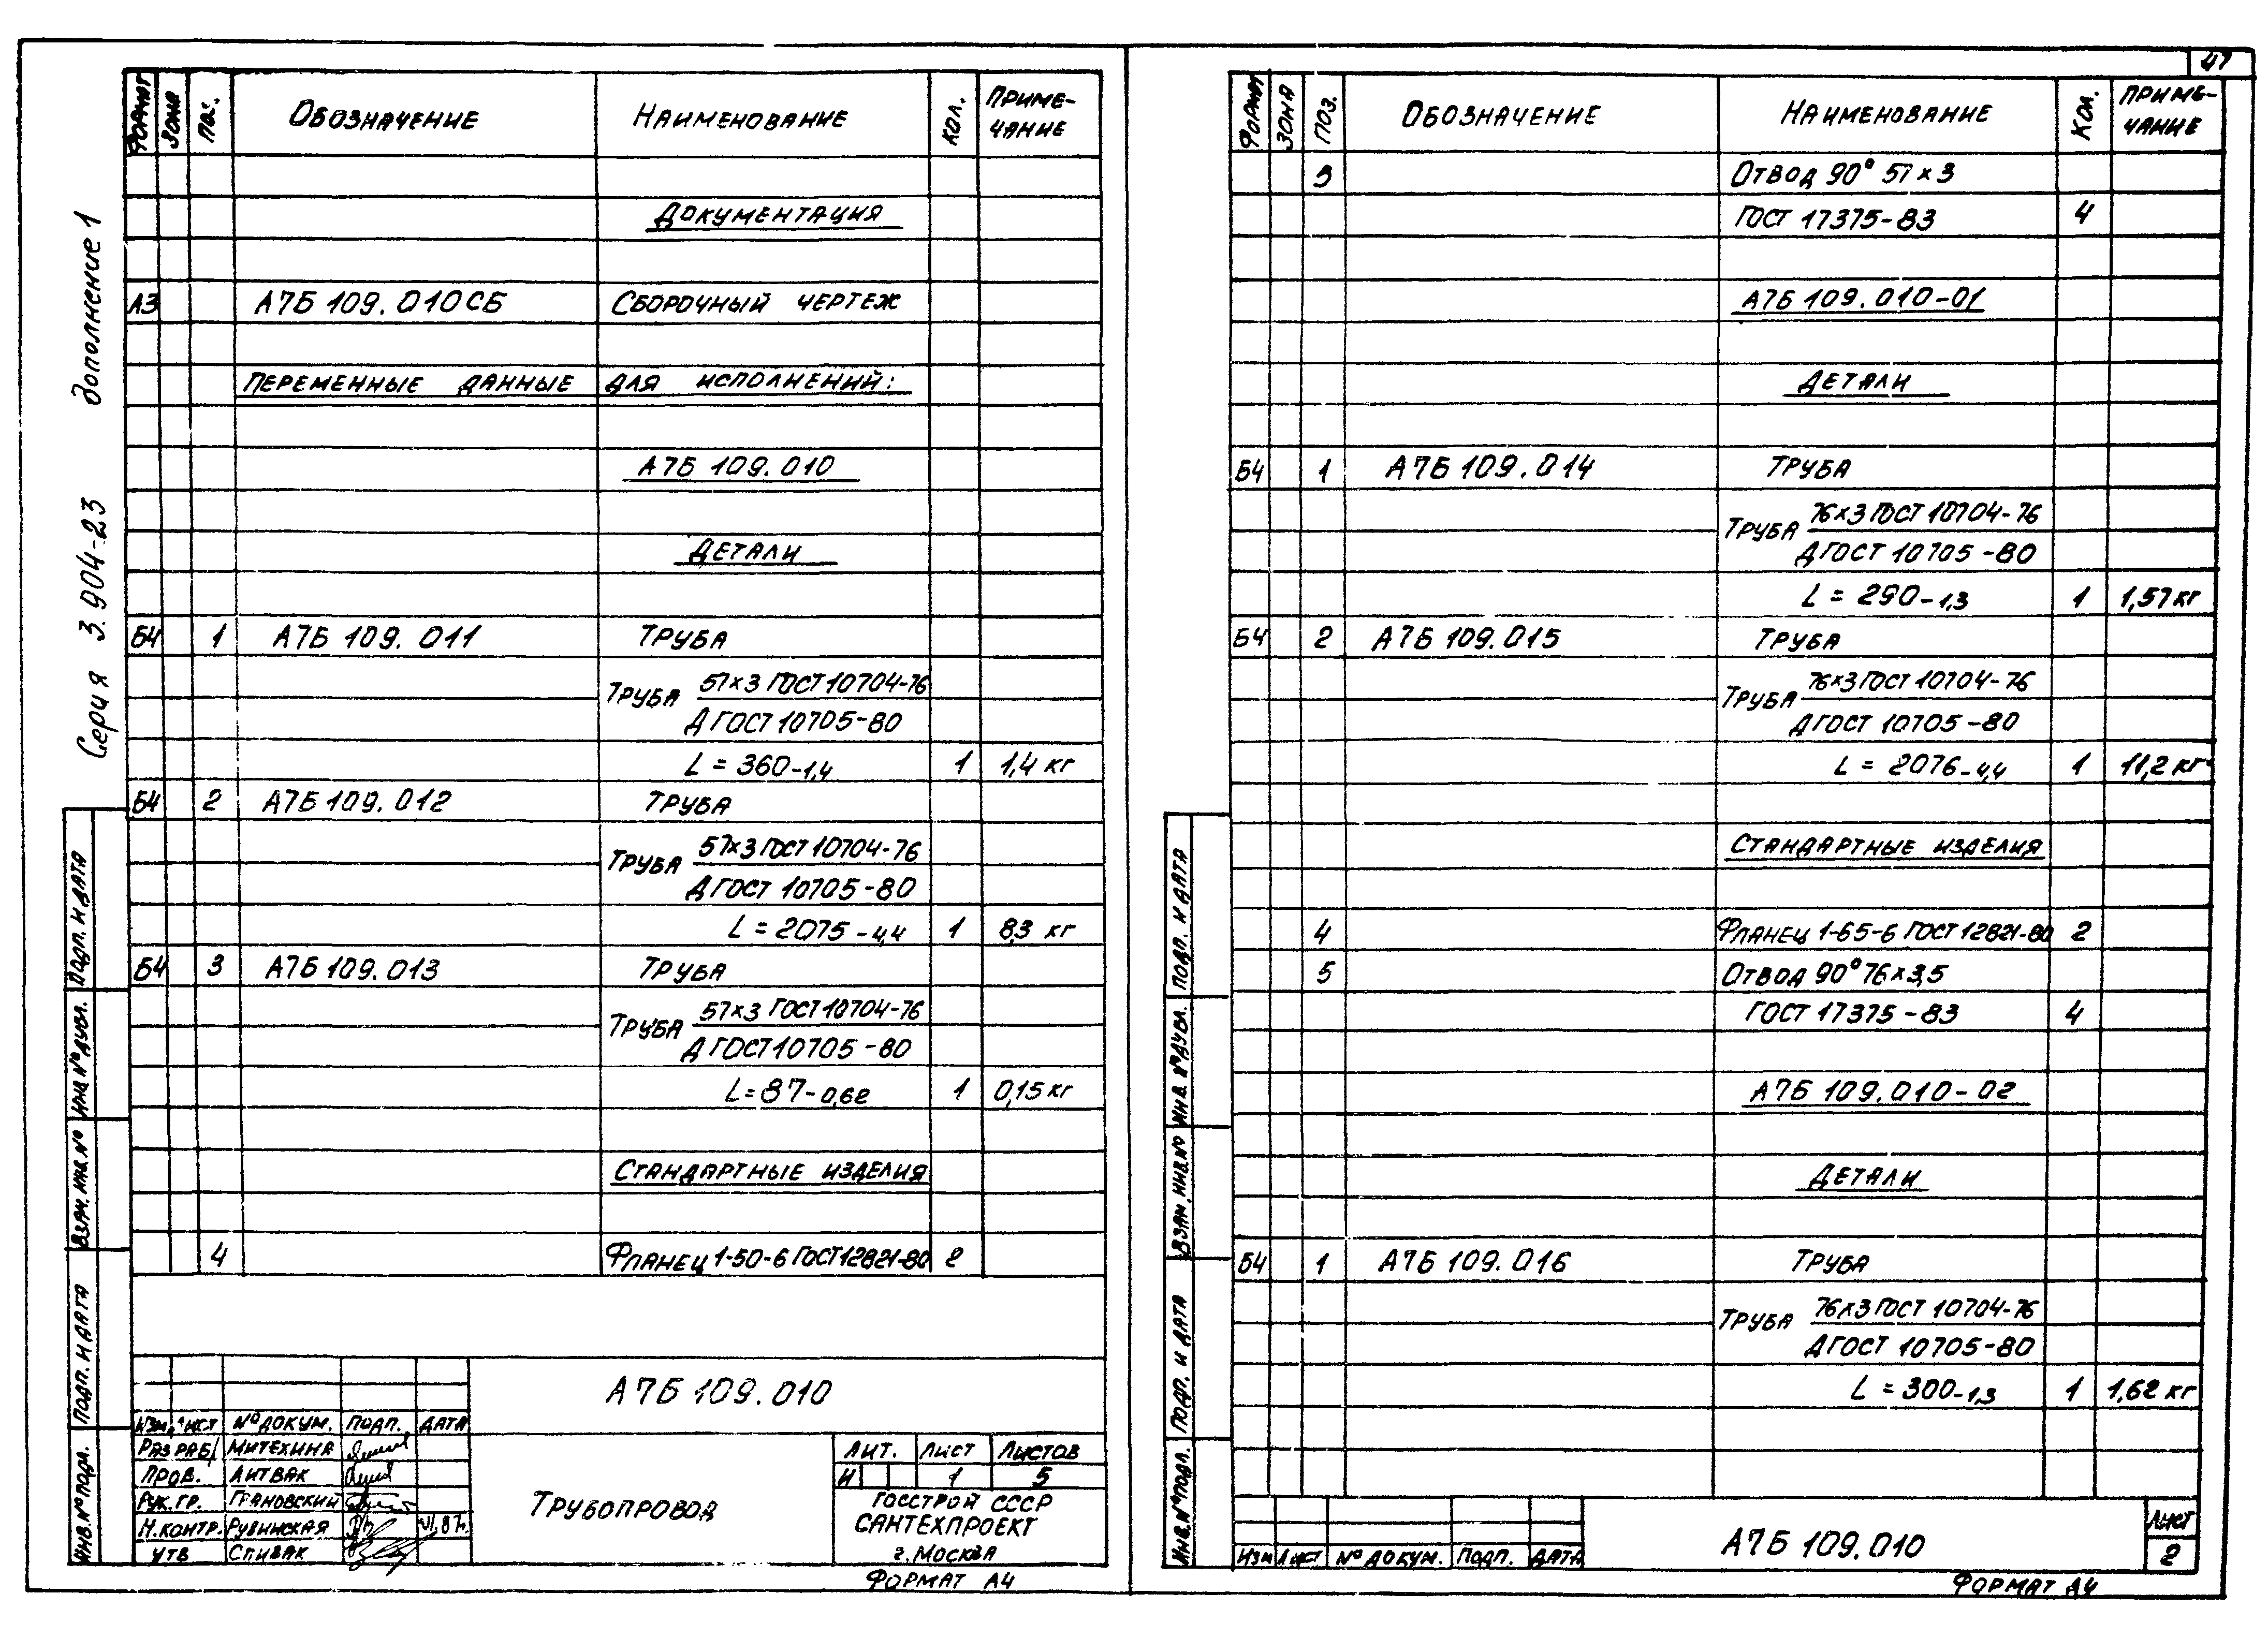 Дополнение 1
Серия 3.904-23
ФОРМАТ ЗОНА ПОЗ. ОБОЗНАЧЕНИЕ НАИМЕНОВАНИЕ КОЛ. ПРИМЕ-
ЧАНИЕ
ДОКУМЕНТАЦИЯ
А3 А7Б 109.010СБ СБОРОЧНЫЙ ЧЕРТЕЖ
ПЕРЕМЕННЫЕ ДАННЫЕ ДЛЯ ИСПОЛНЕНИЙ:
А7Б 109.010
ДЕТАЛИ
Б4 1 А7Б 109.011 ТРУБА
ТРУБА 57×3 ГОСТ 10704-76
Д ГОСТ 10705-80
L = 360-1,4 1 1,4 кг
Б4 2 А7Б 109.012 ТРУБА
ТРУБА 57×3 ГОСТ 10704-76
Д ГОСТ 10705-80
L = 2075-4,4 1 8,3 кг
Б4 3 А7Б 109.013 ТРУБА
ТРУБА 57×3 ГОСТ 10704-76
Д ГОСТ 10705-80
L = 87-0,62 1 0,15 кг
СТАНДАРТНЫЕ ИЗДЕЛИЯ
4 ФЛАНЕЦ 1-50-6 ГОСТ 12821-80 2
ПОДП. И ДАТА
ИНВ. № ДУБЛ.
ВЗАМ. ИНВ. №
ПОДП. И ДАТА
ИНВ. № ПОДЛ.
А7Б 109.010
ИЗМ. ЛИСТ № ДОКУМ. ПОДП. ДАТА
РАЗРАБ. МИТЕХИНА
ПРОВ. ЛИТВАК
РУК. ГР. ГРАНОВСКИЙ
Н.КОНТР. РУБИНСКАЯ VI.87.
УТВ СПИВАК
ТРУБОПРОВОД
ЛИТ. ЛИСТ ЛИСТОВ
И 1 5
ГОССТРОЙ СССР
САНТЕХПРОЕКТ
г. МОСКВА
ФОРМАТ А4
47
ФОРМАТ ЗОНА ПОЗ. ОБОЗНАЧЕНИЕ НАИМЕНОВАНИЕ КОЛ. ПРИМЕ-
ЧАНИЕ
5 ОТВОД 90° 57×3
ГОСТ 17375-83 4
А7Б 109.010-01
ДЕТАЛИ
Б4 1 А7Б 109.014 ТРУБА
ТРУБА 76×3 ГОСТ 10704-76
Д ГОСТ 10705-80
L = 290-1,3 1 1,57 кг
Б4 2 А7Б 109.015 ТРУБА
ТРУБА 76×3 ГОСТ 10704-76
Д ГОСТ 10705-80
L = 2076-4,4 1 11,2 кг
СТАНДАРТНЫЕ ИЗДЕЛИЯ
4 ФЛАНЕЦ 1-65-6 ГОСТ 12821-80 2
5 ОТВОД 90° 76×3,5
ГОСТ 17375-83 4
А7Б 109.010-02
ДЕТАЛИ
Б4 1 А7Б 109.016 ТРУБА
ТРУБА 76×3 ГОСТ 10704-76
Д ГОСТ 10705-80
L = 300-1,3 1 1,62 кг
ПОДП. И ДАТА
ИНВ. № ДУБЛ.
ВЗАМ. ИНВ. №
ПОДП. И ДАТА
ИНВ. № ПОДЛ.
ИЗМ ЛИСТ № ДОКУМ. ПОДП. ДАТА
А7Б 109.010
ЛИСТ
2
ФОРМАТ А4